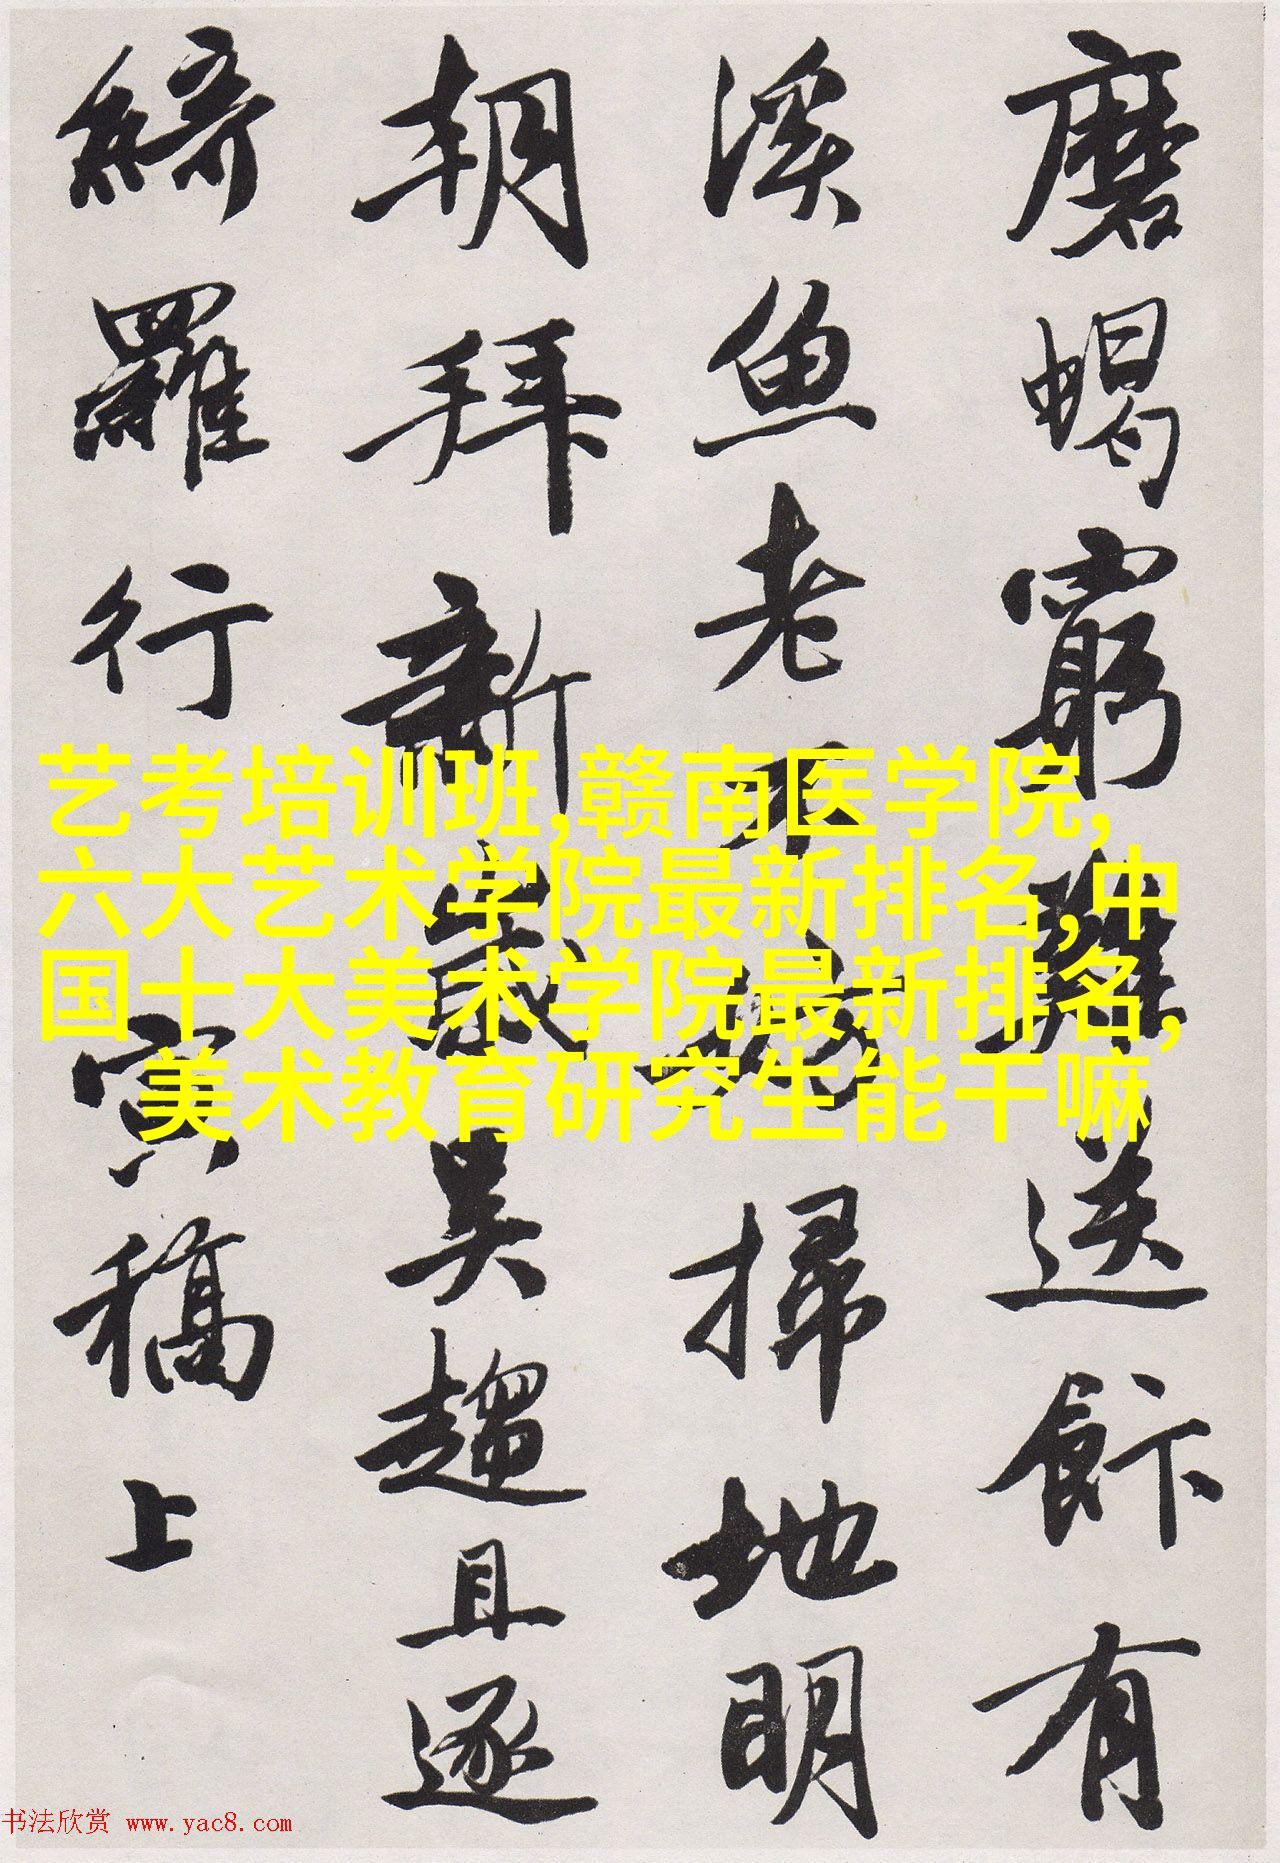 磨蝎窮難送飰有
溪魚老不妨掃地明
朝拜新歲吳趨且逐
綺羅行 寅稿上
艺考培训班,赣南医学院,
六大艺术学院最新排名,中
国十大美术学院最新排名,
美术教育研究生能干嘛
书法欣赏 www.yac8.com